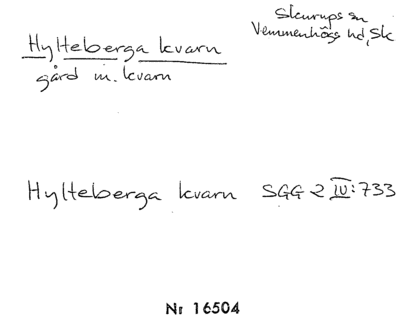 Skurups sn
Vemmenhögs hd, Sk
Hylteberga kvarn
gård m. kvarn
Hylteberga kvarn SGG 2 IV:733
Nr 16504